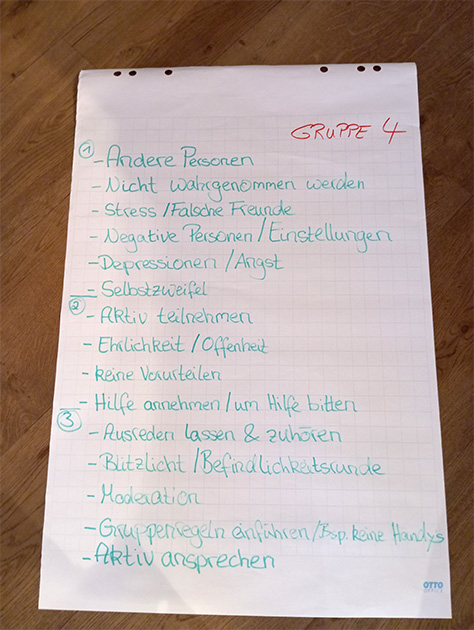 GRUPPE 4
① - Andere Personen
- Nicht wahrgenommen werden
- Stress / Falsche Freunde
- Negative Personen / Einstellungen
- Depressionen / Angst
- Selbstzweifel
② - Aktiv teilnehmen
- Ehrlichkeit / Offenheit
- keine Vorurteilen
- Hilfe annehmen / um Hilfe bitten
③ - Ausreden lassen & zuhören
- Blitzlicht / Befindlichkeitsrunde
- Moderation
- Gruppenregeln einführen / Bsp. keine Handys
- Aktiv ansprechen
OTTO
OFFICE